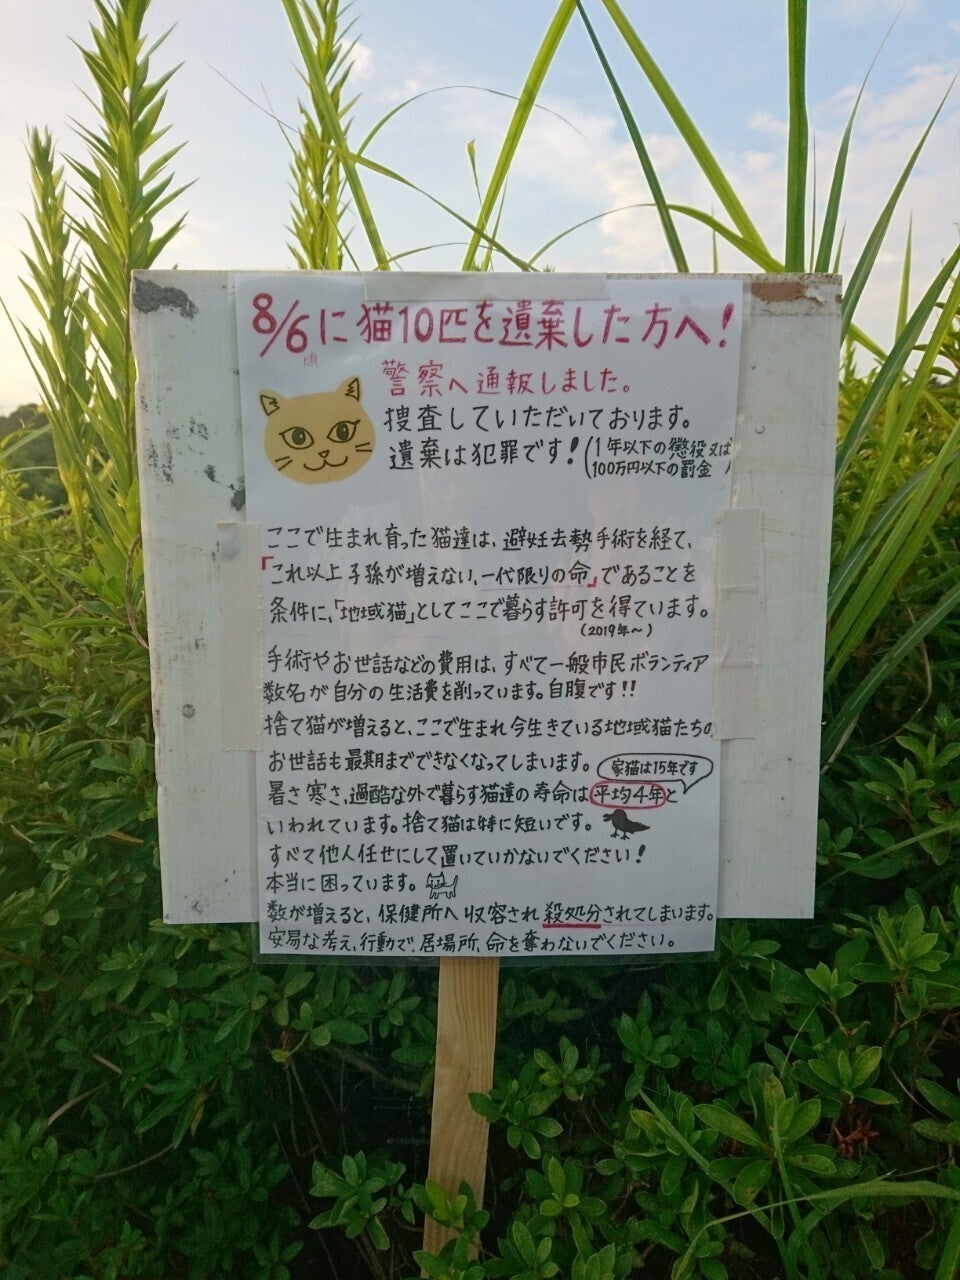 8/6に猫10匹を遺棄した方へ!
頃
警察へ通報しました。
捜査していただいております。
遺棄は犯罪です!(1年以下の懲役又は
100万円以下の罰金)
ここで生まれ育った猫達は、避妊去勢手術を経て、
「これ以上子孫が増えない、一代限りの命」であることを
条件に、「地域猫」としてここで暮らす許可を得ています。
(2019年~)
手術やお世話などの費用は、すべて一般市民ボランティア
数名が自分の生活費を削っています。自腹です!!
捨て猫が増えると、ここで生まれ今生きている地域猫たちの
お世話も最期までできなくなってしまいます。
家猫は15年です
暑さ寒さ、過酷な外で暮らす猫達の寿命は平均4年と
いわれています。捨て猫は特に短いです。
すべて他人任せにして置いていかないでください!
本当に困っています。
数が増えると、保健所へ収容され殺処分されてしまいます。
安易な考え、行動で、居場所、命を奪わないでください。